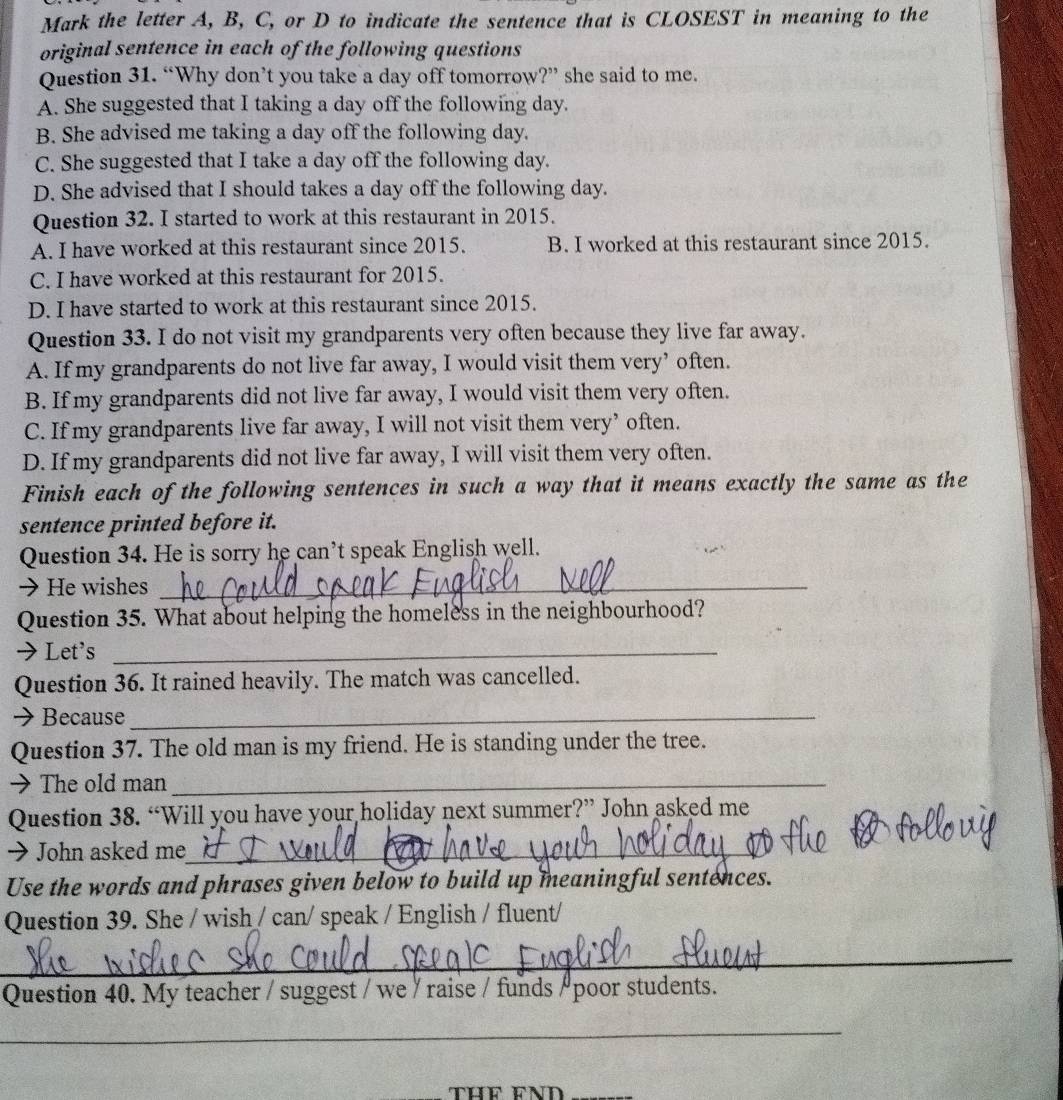 Mark the letter A, B, C, or D to indicate the sentence that is CLOSEST in meaning to the
original sentence in each of the following questions
Question 31. “Why don’t you take a day off tomorrow?” she said to me.
A. She suggested that I taking a day off the following day.
B. She advised me taking a day off the following day.
C. She suggested that I take a day off the following day.
D. She advised that I should takes a day off the following day.
Question 32. I started to work at this restaurant in 2015.
A. I have worked at this restaurant since 2015. B. I worked at this restaurant since 2015.
C. I have worked at this restaurant for 2015.
D. I have started to work at this restaurant since 2015.
Question 33. I do not visit my grandparents very often because they live far away.
A. If my grandparents do not live far away, I would visit them very’ often.
B. If my grandparents did not live far away, I would visit them very often.
C. If my grandparents live far away, I will not visit them very’ often.
D. If my grandparents did not live far away, I will visit them very often.
Finish each of the following sentences in such a way that it means exactly the same as the
sentence printed before it.
Question 34. He is sorry he can’t speak English well.
→ He wishes he could speak English well
Question 35. What about helping the homeless in the neighbourhood?
→ Let’s
Question 36. It rained heavily. The match was cancelled.
→ Because
Question 37. The old man is my friend. He is standing under the tree.
→ The old man
Question 38. “Will you have your holiday next summer?” John asked me
→ John asked me if I would have your holiday the following
Use the words and phrases given below to build up meaningful sentences.
Question 39. She / wish / can/ speak / English / fluent/
She wishes she could speak English fluent
Question 40. My teacher / suggest / we / raise / funds / poor students.
THE END